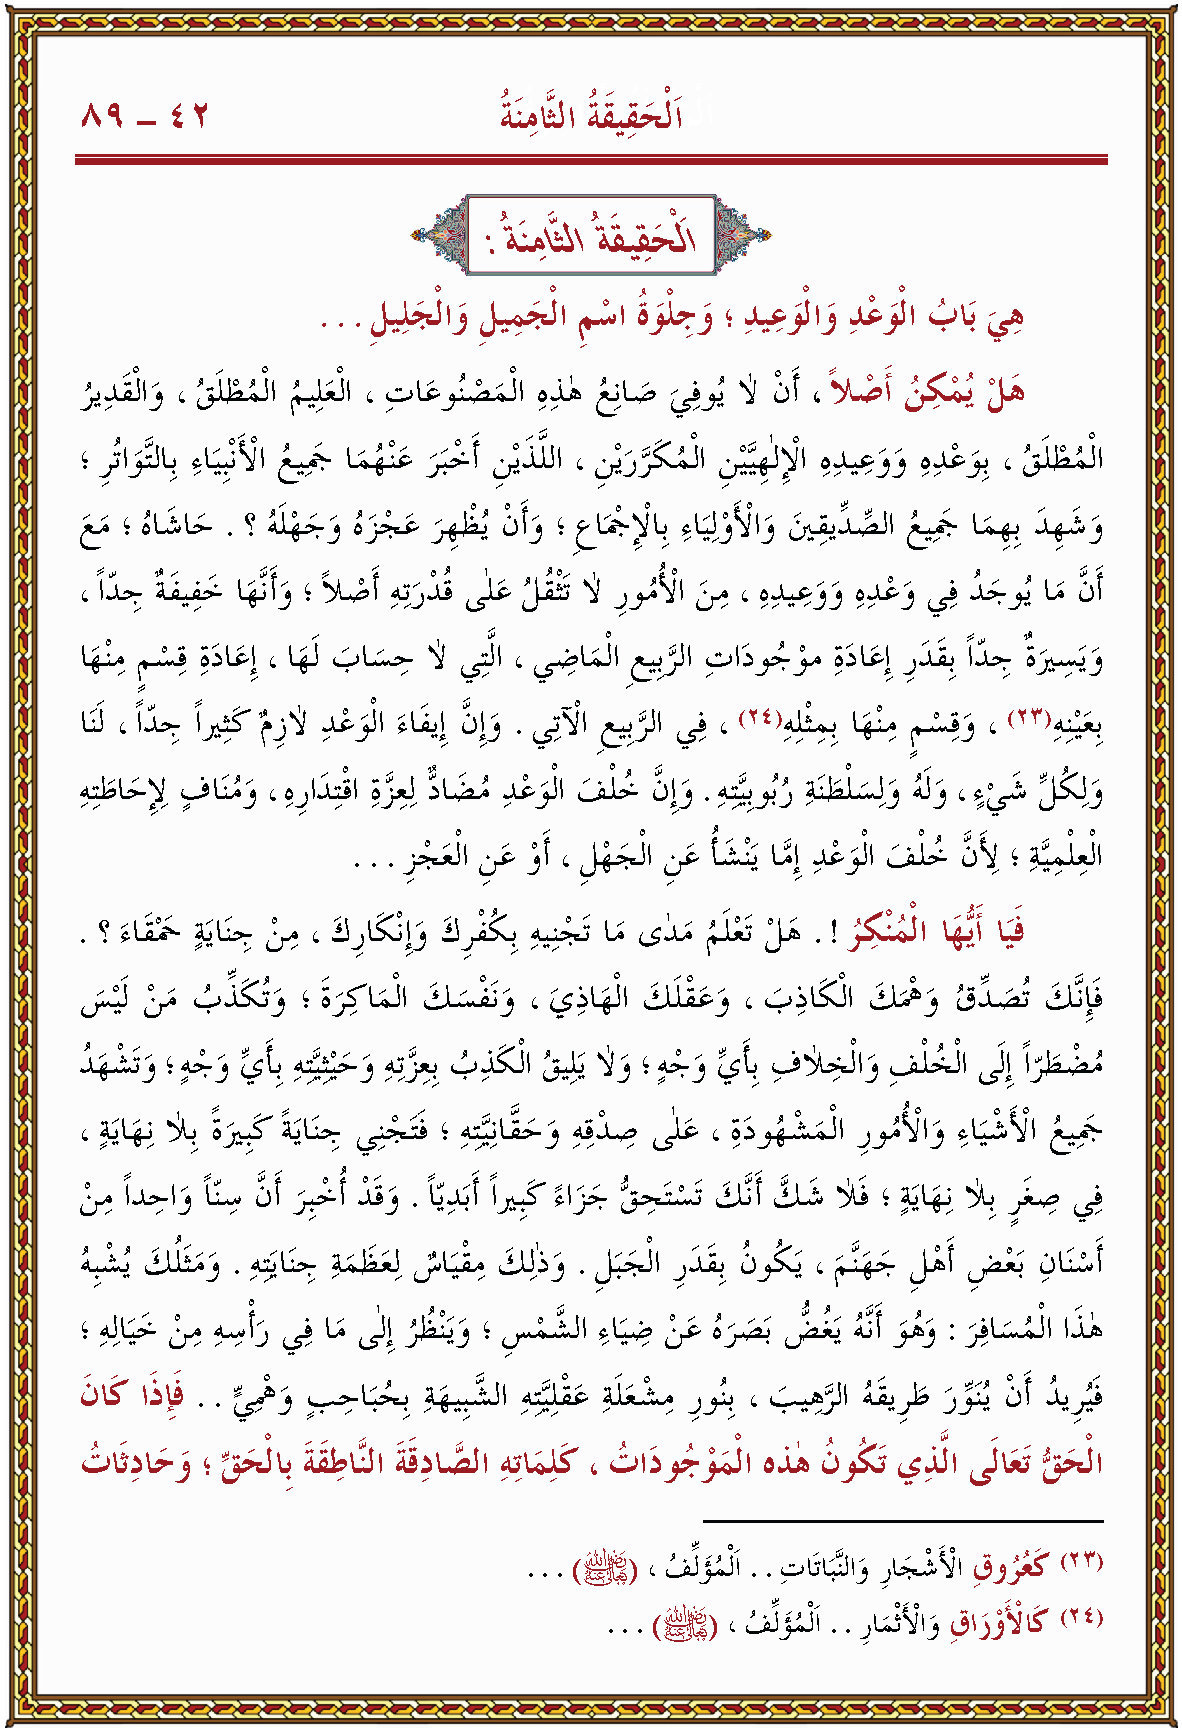 اَلْحَقِيقَةُ الثَّامِنَةُ ٤٢ – ٨٩
اَلْحَقِيقَةُ الثَّامِنَةُ :
هِيَ بَابُ الْوَعْدِ وَالْوَعِيدِ ؛ وَجِلْوَةُ اسْمِ الْجَمِيلِ وَالْجَلِيلِ . . .
هَلْ يُمْكِنُ أَصْلاً ، أَنْ لاٰ يُوفِيَ صَانِعُ هٰذِهِ الْمَصْنُوعَاتِ ، الْعَلِيمُ الْمُطْلَقُ ، وَالْقَدِيرُ
الْمُطْلَقُ ، بِوَعْدِهِ وَوَعِيدِهِ الْإِلٰهِيَّيْنِ الْمُكَرَّرَيْنِ ، اللَّذَيْنِ أَخْبَرَ عَنْهُمَا جَمِيعُ الْأَنْبِيَاءِ بِالتَّوَاتُرِ ؛
وَشَهِدَ بِهِمَا جَمِيعُ الصِّدِّيقِينَ وَالْأَوْلِيَاءِ بِالْإِجْمَاعِ ؛ وَأَنْ يُظْهِرَ عَجْزَهُ وَجَهْلَهُ ؟ . حَاشَاهُ ؛ مَعَ
أَنَّ مَا يُوجَدُ فِي وَعْدِهِ وَوَعِيدِهِ ، مِنَ الْأُمُورِ لاٰ تَثْقُلُ عَلٰى قُدْرَتِهِ أَصْلاً ؛ وَأَنَّهَا خَفِيفَةٌ جِدّاً ،
وَيَسِيرَةٌ جِدّاً بِقَدَرِ إِعَادَةِ مَوْجُودَاتِ الرَّبِيعِ الْمَاضِي ، الَّتِي لاٰ حِسَابَ لَهَا ، إِعَادَةِ قِسْمٍ مِنْهَا
بِعَيْنِهِ(٢٣) ، وَقِسْمٍ مِنْهَا بِمِثْلِهِ(٢٤) ، فِي الرَّبِيعِ الْآتِي . وَإِنَّ إِيفَاءَ الْوَعْدِ لاٰزِمٌ كَثِيراً جِدّاً ، لَنَا
وَلِكُلِّ شَيْءٍ ، وَلَهُ وَلِسَلْطَنَةِ رُبُوبِيَّتِهِ . وَإِنَّ خُلْفَ الْوَعْدِ مُضَادٌّ لِعِزَّةِ اقْتِدَارِهِ ، وَمُنَافٍ لِإِحَاطَتِهِ
الْعِلْمِيَّةِ ؛ لِأَنَّ خُلْفَ الْوَعْدِ إِمَّا يَنْشَأُ عَنِ الْجَهْلِ ، أَوْ عَنِ الْعَجْزِ . . .
فَيَا أَيُّهَا الْمُنْكِرُ ! . هَلْ تَعْلَمُ مَدٰى مَا تَجْنِيهِ بِكُفْرِكَ وَإِنْكَارِكَ ، مِنْ جِنَايَةٍ حَمْقَاءَ ؟ .
فَإِنَّكَ تُصَدِّقُ وَهْمَكَ الْكَاذِبَ ، وَعَقْلَكَ الْهَاذِيَ ، وَنَفْسَكَ الْمَاكِرَةَ ؛ وَتُكَذِّبُ مَنْ لَيْسَ
مُضْطَرّاً إِلَى الْخُلْفِ وَالْخِلاٰفِ بِأَيِّ وَجْهٍ ؛ وَلاٰ يَلِيقُ الْكَذِبُ بِعِزَّتِهِ وَحَيْثِيَّتِهِ بِأَيِّ وَجْهٍ ؛ وَتَشْهَدُ
جَمِيعُ الْأَشْيَاءِ وَالْأُمُورِ الْمَشْهُودَةِ ، عَلٰى صِدْقِهِ وَحَقَّانِيَّتِهِ ؛ فَتَجْنِي جِنَايَةً كَبِيرَةً بِلاٰ نِهَايَةٍ ،
فِي صِغَرٍ بِلاٰ نِهَايَةٍ ؛ فَلاٰ شَكَّ أَنَّكَ تَسْتَحِقُّ جَزَاءً كَبِيراً أَبَدِيّاً . وَقَدْ أُخْبِرَ أَنَّ سِنّاً وَاحِداً مِنْ
أَسْنَانِ بَعْضِ أَهْلِ جَهَنَّمَ ، يَكُونُ بِقَدَرِ الْجَبَلِ . وَذٰلِكَ مِقْيَاسٌ لِعَظَمَةِ جِنَايَتِهِ . وَمَثَلُكَ يُشْبِهُ
هٰذَا الْمُسَافِرَ : وَهُوَ أَنَّهُ يَغُضُّ بَصَرَهُ عَنْ ضِيَاءِ الشَّمْسِ ؛ وَيَنْظُرُ إِلٰى مَا فِي رَأْسِهِ مِنْ خَيَالِهِ ؛
فَيُرِيدُ أَنْ يُنَوِّرَ طَرِيقَهُ الرَّهِيبَ ، بِنُورِ مِشْعَلَةِ عَقْلِيَّتِهِ الشَّبِيهَةِ بِحُبَاحِبٍ وَهْمِيٍّ . . فَإِذَا كَانَ
الْحَقُّ تَعَالَى الَّذِي تَكُونُ هٰذِهِ الْمَوْجُودَاتُ ، كَلِمَاتِهِ الصَّادِقَةَ النَّاطِقَةَ بِالْحَقِّ ؛ وَحَادِثَاتُ
(٢٣) كَعُرُوقِ الْأَشْجَارِ وَالنَّبَاتَاتِ . . اَلْمُؤَلِّفُ ، (رَضِيَ اللهُ تَعَالٰى عَنْهُ) . . .
(٢٤) كَالْأَوْرَاقِ وَالْأَثْمَارِ . . اَلْمُؤَلِّفُ ، (رَضِيَ اللهُ تَعَالٰى عَنْهُ) . . .